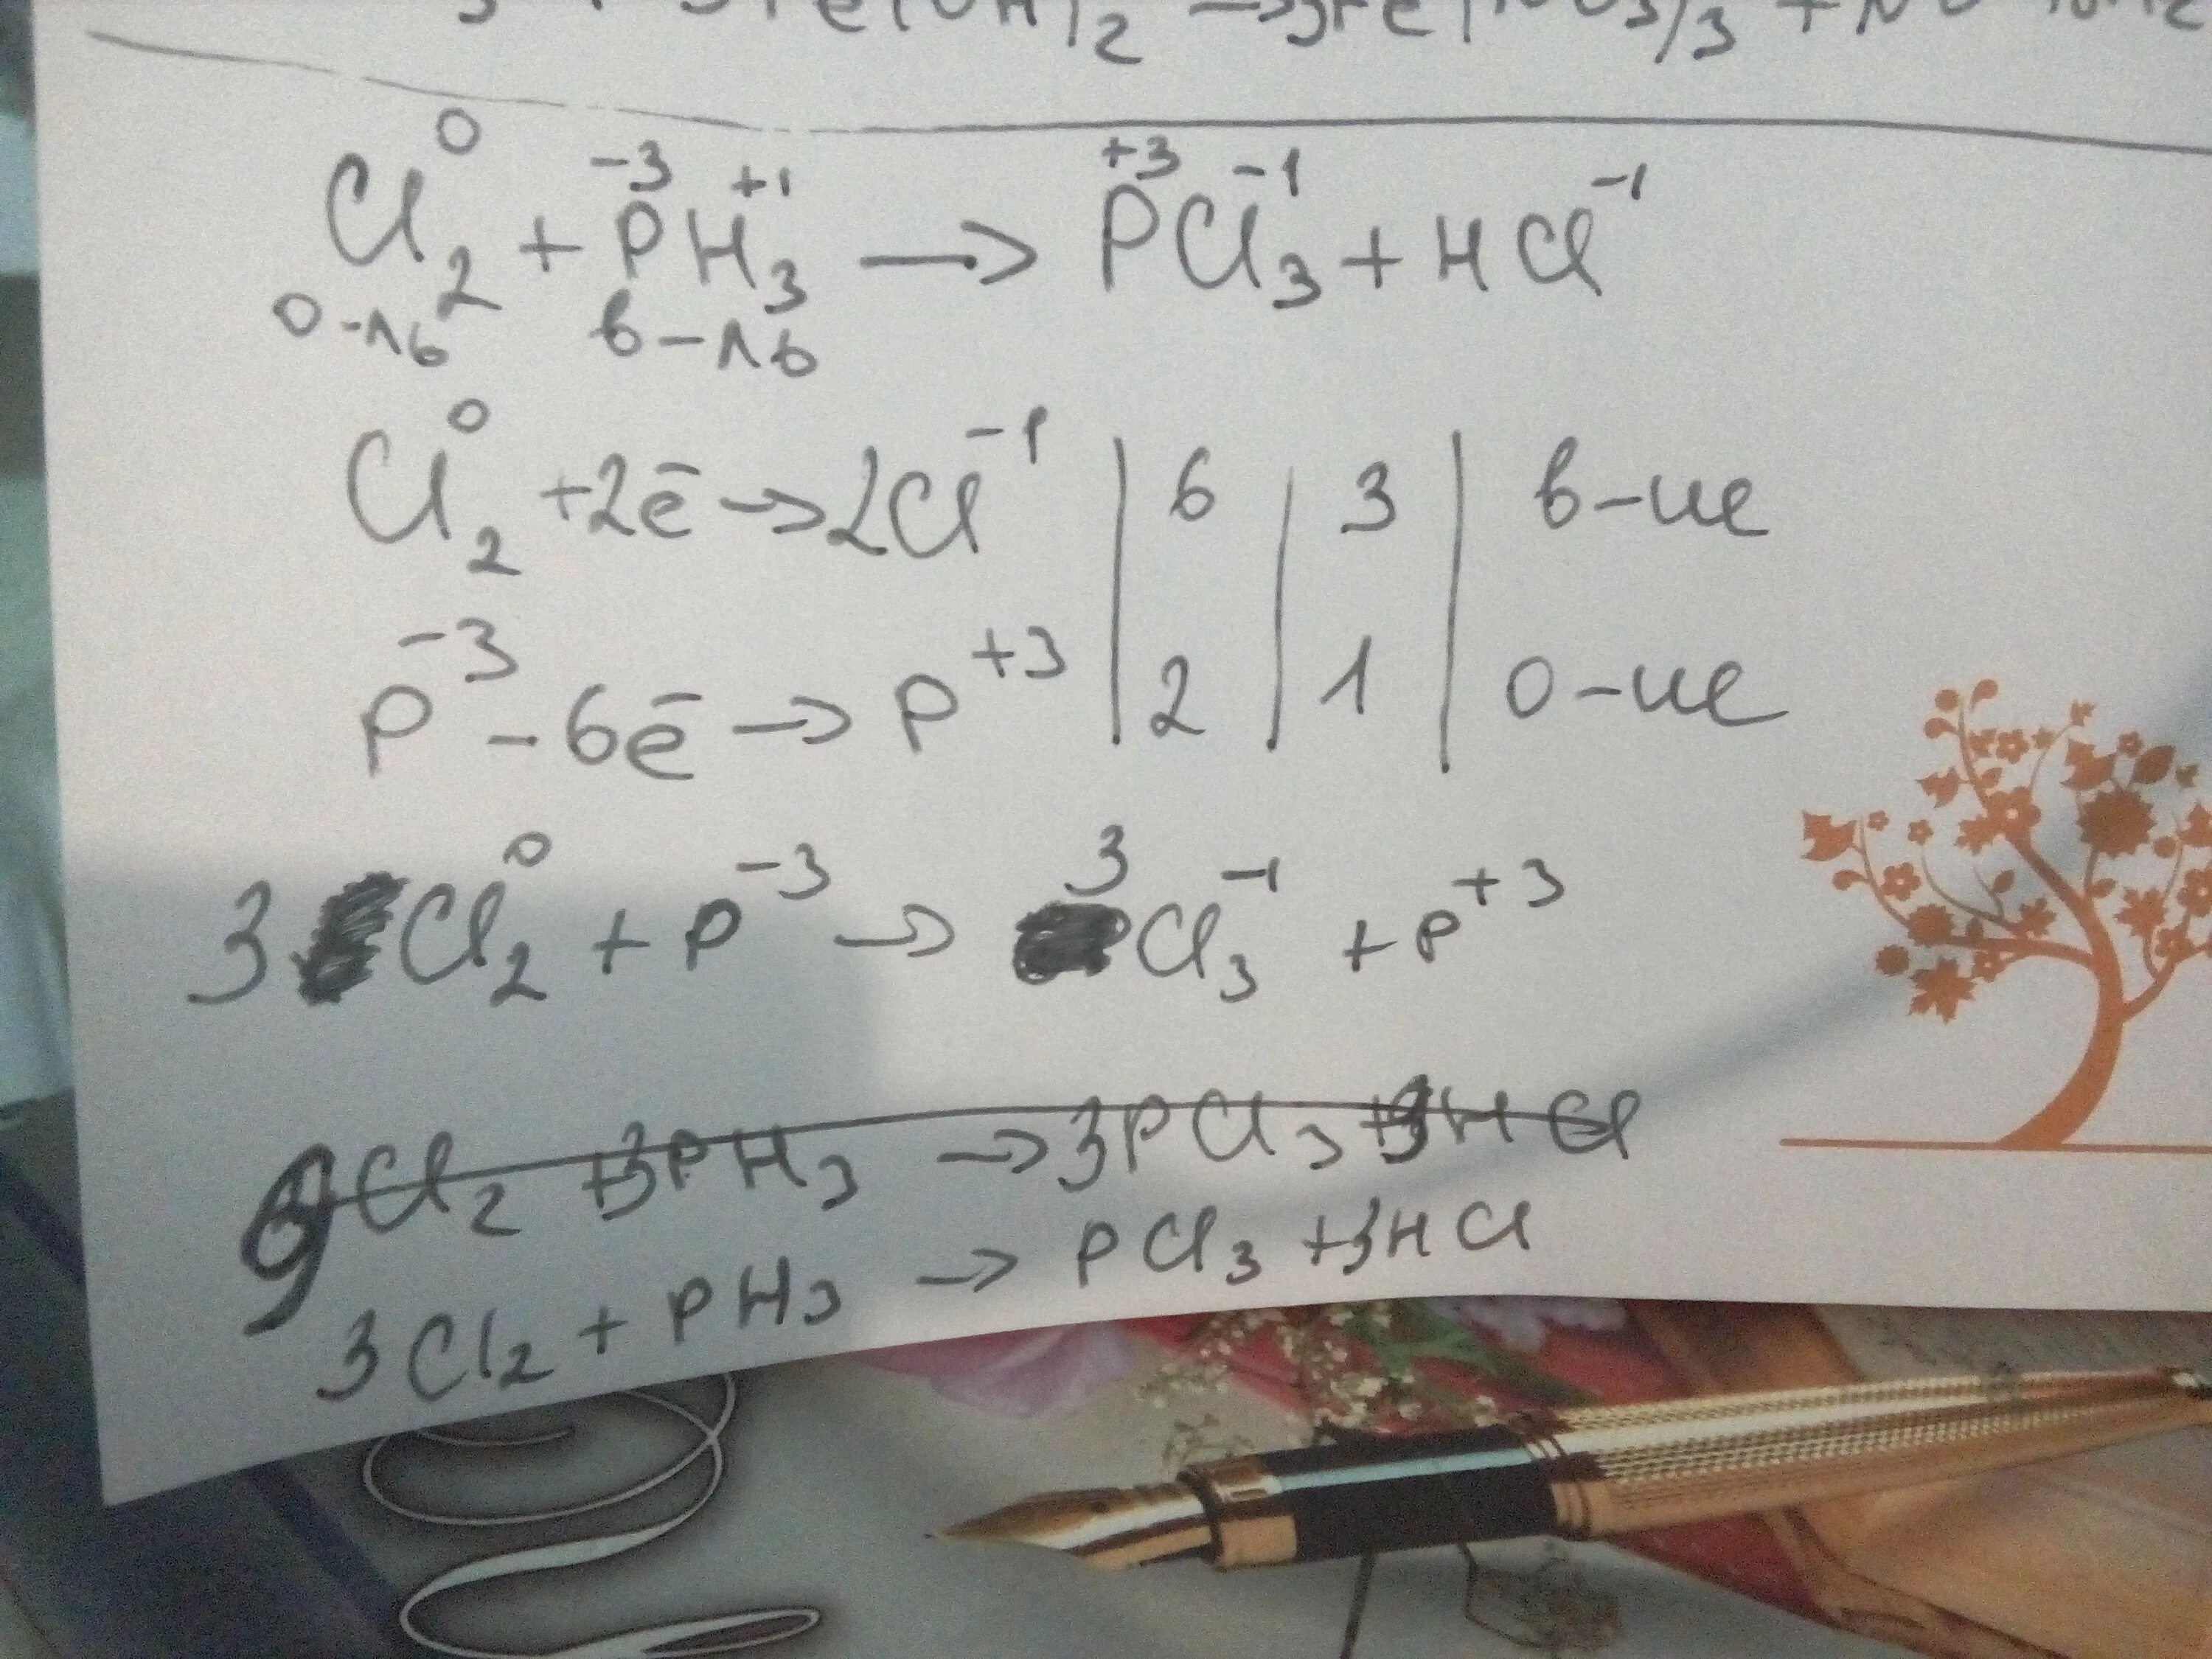 Fe(OH)2 → 3Fe(NO3)3 + NO
Cl2⁰ + P⁻³H3⁺¹ → P⁺³Cl3⁻¹ + HCl⁻¹
о-ль в-ль
Cl2⁰ + 2ē → 2Cl⁻¹ | 6 | 3 | в-ие
P⁻³ - 6ē → P⁺³ | 2 | 1 | о-ие
3Cl2⁰ + P⁻³ → 3Cl3⁻¹ + P⁺³
9Cl2 + 3PH3 → 3PCl3 + 9HCl
3Cl2 + PH3 → PCl3 + 3HCl